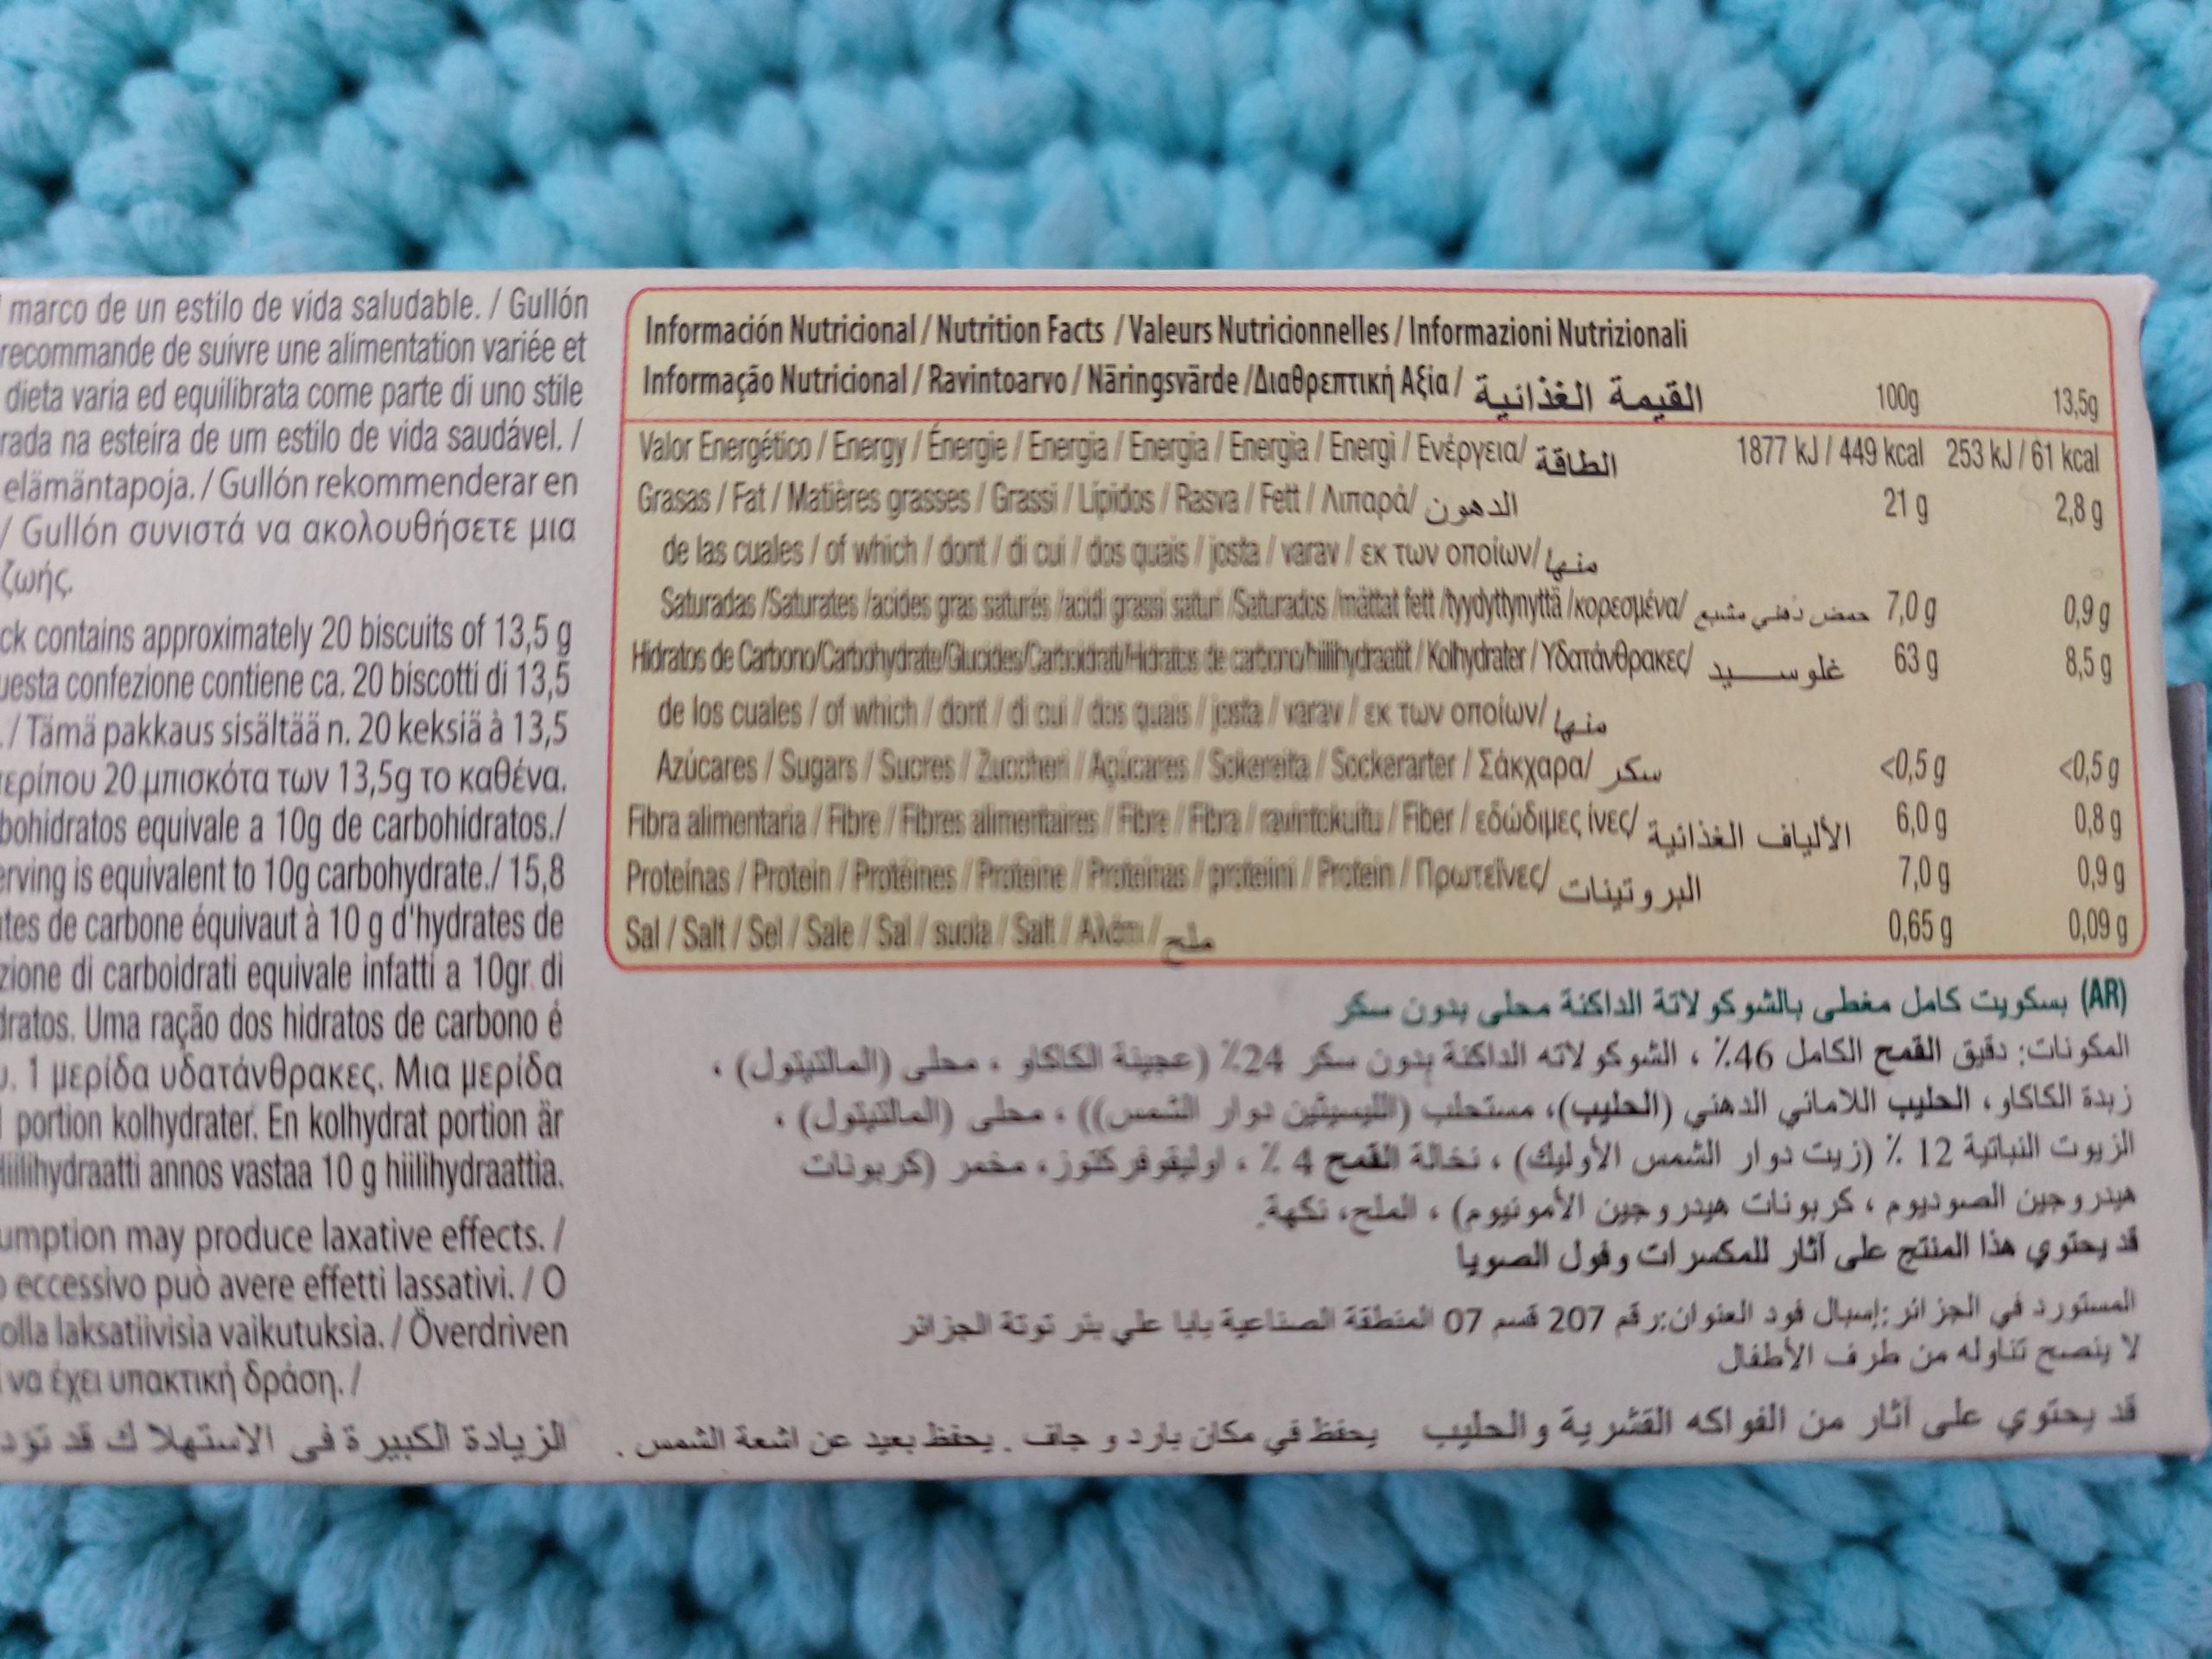 marco de un estilo de vida saludable. / Gullón
recommande de suivre une alimentation variée et
dieta varia ed equilibrata come parte di uno stile
rada na esteira de um estilo de vida saudável. /
elämäntapoja. / Gullón rekommenderar en
/ Gullón συνιστά να ακολουθήσετε μια
ζωής.
ck contains approximately 20 biscuits of 13,5 g
uesta confezione contiene ca. 20 biscotti di 13,5
. / Tämä pakkaus sisältää n. 20 keksiä à 13,5
ερίπου 20 μπισκότα των 13,5g το καθένα.
bohidratos equivale a 10g de carbohidratos./
erving is equivalent to 10g carbohydrate./ 15,8
tes de carbone équivaut à 10 g d'hydrates de
zione di carboidrati equivale infatti a 10gr. di
dratos. Uma ração dos hidratos de carbono é
. 1 μερίδα υδατάνθρακες. Μια μερίδα
portion kolhydrater. En kolhydrat portion är
Hiilihydraatti annos vastaa 10 g hiilihydraattia.
umption may produce laxative effects. /
o eccessivo può avere effetti lassativi. / O
olla laksatiivisia vaikutuksia. / Överdriven
να έχει υπακτική δράση. /
الزيادة الكبيرة في الاستهلاك قد تؤد
Información Nutricional / Nutrition Facts / Valeurs Nutricionnelles / Informazioni Nutrizionali
Informação Nutricional / Ravintoarvo / Näringsvärde /Διαθρεπτική Αξία/ القيمة الغذائية 100g 13,5g
Valor Energético / Energy / Énergie / Energia / Energia / Energia / Energi / Ενέργεια/ الطاقة 1877 kJ / 449 kcal 253 kJ / 61 kcal
Grasas / Fat / Matières grasses / Grassi / Lípidos / Rasva / Fett / Λιπαρά/ الدهون 21 g 2,8 g
de las cuales / of which / dont / di cui / dos quais / josta / varav / εκ των οποίων/ منها
Saturadas /Saturates /acides gras saturés /acidi grassi saturi /Saturados /mättat fett /tyydyttynyttä /κορεσμένα/ حمض دهني مشبع 7,0 g 0,9 g
Hidratos de Carbono/Carbohydrate/Glucides/Carboidrati/Hidratos de carbono/hiilihydraatit / Kolhydrater / Υδατάνθρακες/ غلوسيد 63 g 8,5 g
de los cuales / of which / dont / di cui / dos quais / josta / varav / εκ των οποίων/ منها
Azúcares / Sugars / Sucres / Zuccheri / Açúcares / Sokereita / Sockerarter / Σάκχαρα/ سكر <0,5 g <0,5 g
Fibra alimentaria / Fibre / Fibres alimentaires / Fibre / Fibra / ravintokuitu / Fiber / εδώδιμες ίνες/ الألياف الغذائية 6,0 g 0,8 g
Proteínas / Protein / Protéines / Proteine / Proteínas / proteiini / Protein / Πρωτεΐνες/ البروتينات 7,0 g 0,9 g
Sal / Salt / Sel / Sale / Sal / suola / Salt / Αλάτι / ملح 0,65 g 0,09 g
(AR) بسكويت كامل مغطى بالشوكولاتة الداكنة محلى بدون سكر
المكونات: دقيق القمح الكامل 46٪ ، الشوكولاته الداكنة بدون سكر 24٪ (عجينة الكاكاو ، محلى (المالتيتول) ،
زبدة الكاكاو، الحليب اللامائي الدهني (الحليب)، مستحلب (الليسيثين دوار الشمس)) ، محلى (المالتيتول) ،
الزيوت النباتية 12 ٪ (زيت دوار الشمس الأوليك) ، نخالة القمح 4 ٪ ، اوليقوفركتوز، مخمر (كربونات
هيدروجين الصوديوم ، كربونات هيدروجين الأمونيوم) ، الملح، نكهة.
قد يحتوي هذا المنتج على آثار للمكسرات وفول الصويا
المستورد في الجزائر:إسبال فود العنوان:رقم 207 قسم 07 المنطقة الصناعية بابا علي بئر توتة الجزائر
لا ينصح تناوله من طرف الأطفال
قد يحتوي على آثار من الفواكه القشرية و الحليب يحفظ في مكان بارد و جاف . يحفظ بعيد عن اشعة الشمس .